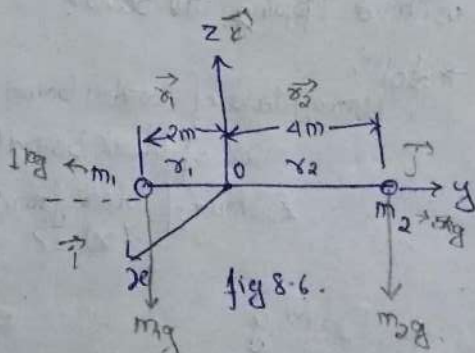 z k⃗
r⃗₁ r⃗₂
2m 4m
1kg ← m₁ r₁ O r₂ j⃗
y
m₂ → 5kg
i⃗
x
fig 8.6.
m₁g m₂g